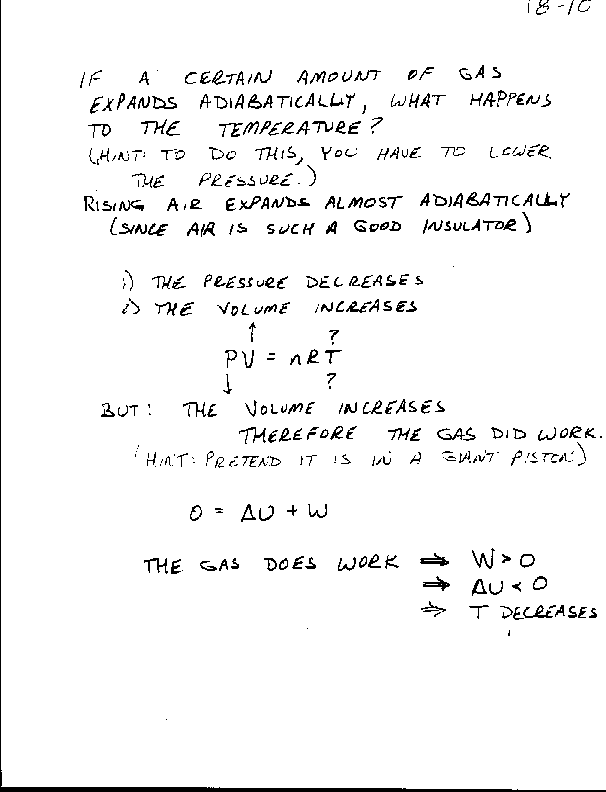 18-10
IF A CERTAIN AMOUNT OF GAS
EXPANDS ADIABATICALLY, WHAT HAPPENS
TO THE TEMPERATURE?
(HINT: TO DO THIS, YOU HAVE TO LOWER
THE PRESSURE.)
RISING AIR EXPANDS ALMOST ADIABATICALLY
(SINCE AIR IS SUCH A GOOD INSULATOR)
i) THE PRESSURE DECREASES
i) THE VOLUME INCREASES
↑ ?
PV = nRT
↓ ?
BUT: THE VOLUME INCREASES
THEREFORE THE GAS DID WORK.
(HINT: PRETEND IT IS IN A GIANT PISTON)
0 = ΔU + W
THE GAS DOES WORK ⇒ W > 0
⇒ ΔU < 0
⇒ T DECREASES